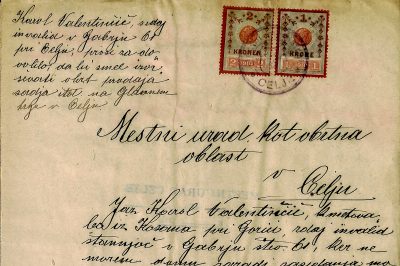 Karol Valentinčič, sedaj
invalid v Gaberju 26
pri Celju, prosi za do-
volilo, da bi smel izvr-
ševati obrt prodaja
sadja itd. na Glavnem
trgu v Celju
2 1
KRONEN KRONE
CELJE
Mestni urad kot obrtna
oblast
v
Celju
Jaz Karol Valentinčič,
iz pri Gorici, sedaj invalid
stanujoč v Gaberju štev. 26, ker ne
morem doma zaradi